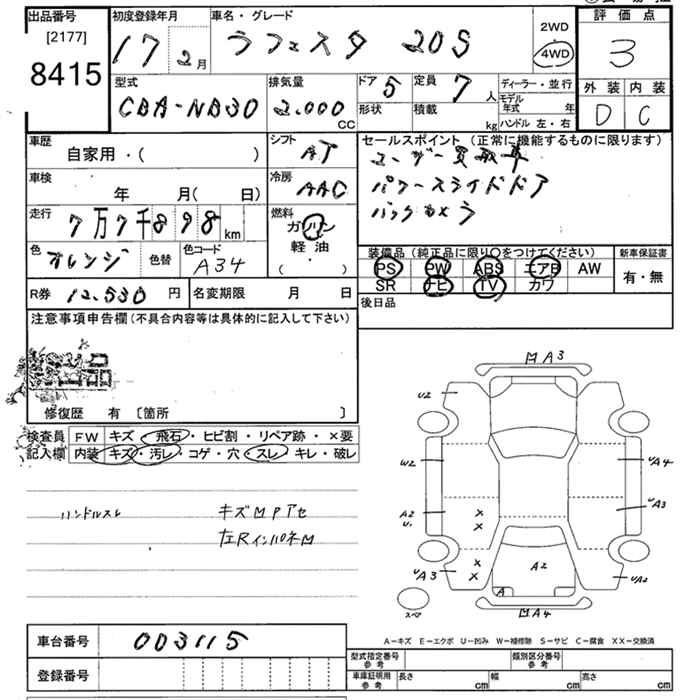 出品番号
[2177]
8415
初度登録年月
17 2月
車名・グレード
ラフェスタ 20S
2WD
4WD
評価点
3
外装 内装
D C
型式
CBA-NB30
排気量
2.000 CC
ドア 5
定員 7人
形状
積載 kg
ディーラー・並行
モデル年式 年
ハンドル 左・右
車歴
自家用・( )
シフト
AT
車検
年 月( 日)
冷房
AAC
走行
7万7千898km
燃料
ガソリン
軽油
( )
色 オレンジ 色替
色コード
A34
セールスポイント (正常に機能するものに限ります)
ユーザー買取車
パワースライドドア
バックカメラ
装備品(純正品に限り○をつけてください)
PS PW ABS エアB AW
SR ナビ TV カワ
新車保証書
有・無
R券 12.530円
名変期限 月 日
後日品
注意事項申告欄(不具合内容等は具体的に記入して下さい)
修復歴 有 〔箇所 〕
検査員記入欄
FW キズ・飛石・ヒビ割・リペア跡・×要
内装 キズ・汚レ・コゲ・穴・スレ・キレ・破レ
ハンドルスレ
キズMPアセ
左RインパネM
MA3
U2
W2
A2
U.
UA3
UA4
UA3
UA2
A2
A
MA4
スペア
A−キズ E−エクボ U−凹み W−補修跡 S−サビ C−腐食 XX−交換済
車台番号 003115
登録番号
型式指定番号 参考
類別区分番号 参考
車庫証明用 参考
長さ cm
幅 cm
高さ cm